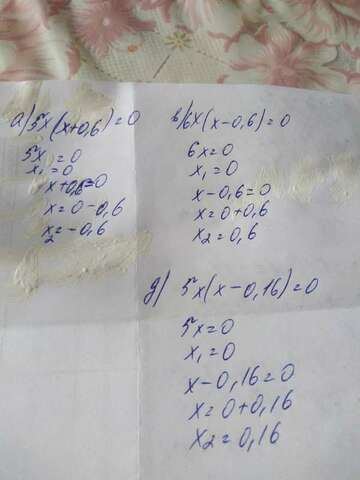 а) 5x(x+0,6)=0
5x=0
x₁=0
x+0,6=0
x=0-0,6
x₂=-0,6
в) 6x(x-0,6)=0
6x=0
x₁=0
x-0,6=0
x=0+0,6
x₂=0,6
д) 5x(x-0,16)=0
5x=0
x₁=0
x-0,16=0
x=0+0,16
x₂=0,16